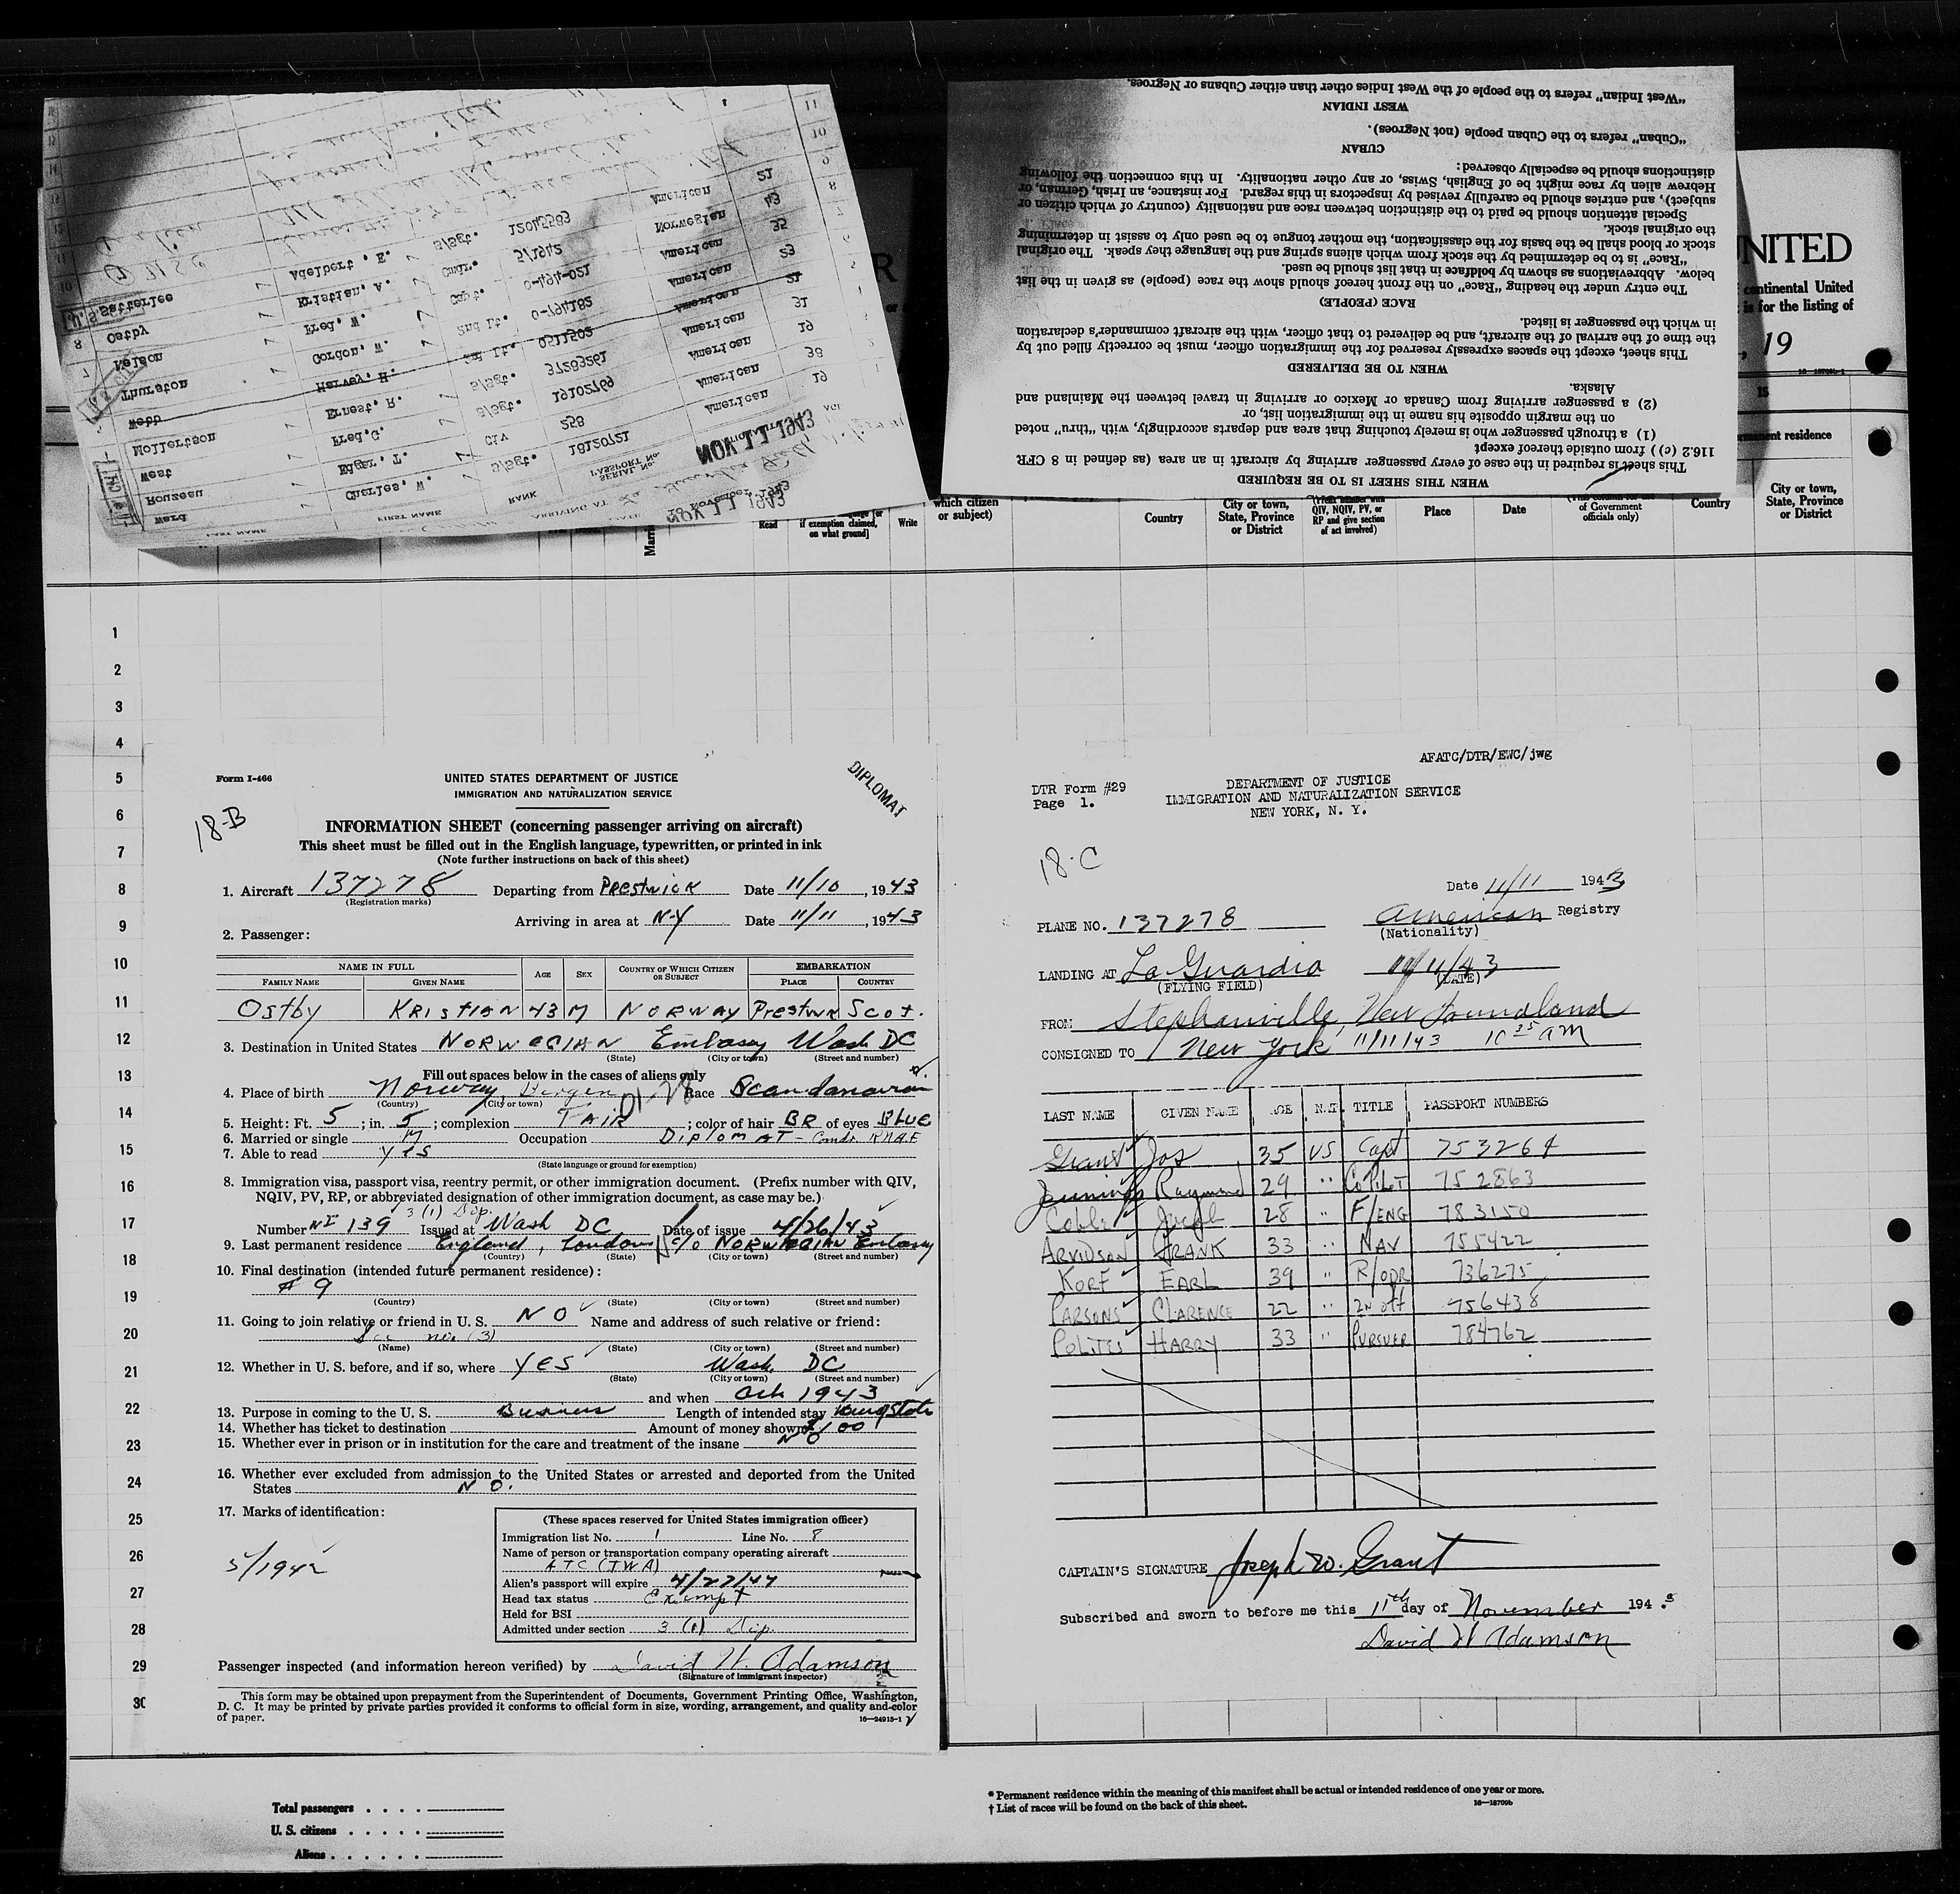 "West Indian" refers to the people of the West Indies other than either Cubans or Negroes.
WEST INDIAN
"Cuban" refers to the Cuban people (not Negroes).
CUBAN
distinctions should be especially observed:
Hebrew alien by race might be of English, Swiss, or any other nationality. In this connection the following
subject), and entries should be carefully revised by inspectors in this regard. For instance, an Irish, German, or
Special attention should be paid to the distinction between race and nationality (country of which citizen or
the original stock.
stock or blood shall be the basis for the classification, the mother tongue to be used only to assist in determining
"Race" is to be determined by the stock from which aliens spring and the language they speak. The original
below. Abbreviations as shown by boldface in that list should be used.
The entry under the heading "Race" on the front hereof should show the race (people) as given in the list
RACE (PEOPLE)
in which the passenger is listed.
the time of the arrival of the aircraft, and be delivered to that officer, with the aircraft commander's declaration
This sheet, except the spaces expressly reserved for the immigration officer, must be correctly filled out by
WHEN TO BE DELIVERED
Alaska.
(2) a passenger arriving from Canada or Mexico or arriving in travel between the Mainland and
on the margin opposite his name in the immigration list, or
(1) a through passenger who is merely touching that area and departs accordingly, with "thru" noted
116.2 (c)) from outside thereof except
This sheet is required in the case of every passenger arriving by aircraft in an area (as defined in 8 CFR
WHEN THIS SHEET IS TO BE REQUIRED
Satterlee Adelbert, E. S/Sgt. 12045583 American 21
Ostby Kristian, A. Cmdr. 5/1942 Norwegian 43
Nelson Fred, W. Capt. 0-494-021 American 35
Thurston Gordon, W. 2nd Lt. 0-794182 American 23
Webb Harvey, H. 2nd Lt. 0511502 American 21
Mollertson Ernest, R. S/Sgt. 37293261 American 31
West Fred, G. S/Sgt. 19102769 American 19
Rouzeau Edger, T. Civ 258 American 38
Ward Charles, W. S/Sgt. 18120721 American 19
LAST NAME FIRST NAME RANK SERIAL No. PASSPORT No.
NOV 11 1943
ARRIVING AT
November 1943
NOV 11 1943
UNITED
continental United
is for the listing of
, 19
15
permanent residence
which citizen or subject)
Read
if exemption claimed, on what ground]
Write
Country
City or town, State, Province or District
QIV, NQIV, PV, or RP and give section of act involved)
Place
Date
of Government officials only)
Country
City or town, State, Province or District
1
2
3
4
5
6
7
8
9
10
11
12
13
14
15
16
17
18
19
20
21
22
23
24
25
26
27
28
29
30
Form I-466
UNITED STATES DEPARTMENT OF JUSTICE
IMMIGRATION AND NATURALIZATION SERVICE
DIPLOMAT
18-B
INFORMATION SHEET (concerning passenger arriving on aircraft)
This sheet must be filled out in the English language, typewritten, or printed in ink
(Note further instructions on back of this sheet)
1. Aircraft 137278 Departing from Prestwick Date 11/10, 1943
(Registration marks)
Arriving in area at N-Y Date 11/11, 1943
2. Passenger:
NAME IN FULL AGE SEX COUNTRY OF WHICH CITIZEN OR SUBJECT EMBARKATION
FAMILY NAME GIVEN NAME PLACE COUNTRY
Ostby KRISTIAN 43 M NORWAY Prestwk Scot.
3. Destination in United States NORWEGIAN Embassy Wash DC
(State) (City or town) (Street and number)
Fill out spaces below in the cases of aliens only
4. Place of birth Norway, Bergen Race Scandanavian
(Country) (City or town)
5. Height: Ft. 5; in. 5; complexion FAIR; color of hair BR of eyes BLUE
6. Married or single M Occupation DIPLOMAT - Comdr RNAF
7. Able to read yes
(State language or ground for exemption)
8. Immigration visa, passport visa, reentry permit, or other immigration document. (Prefix number with QIV,
NQIV, PV, RP, or abbreviated designation of other immigration document, as case may be.)
3 (1) Dip.
Number NI 139 Issued at Wash DC Date of issue 4/26/43
9. Last permanent residence England, London c/o NORWEGIAN Embassy
(Country) (State) (City or town) (Street and number)
10. Final destination (intended future permanent residence):
# 9
(Country) (State) (City or town) (Street and number)
11. Going to join relative or friend in U. S. NO Name and address of such relative or friend:
See no. (3)
(Name) (State) (City or town) (Street and number)
12. Whether in U. S. before, and if so, where YES Wash. DC
(State) (City or town) (Street and number)
and when Oct 1943
13. Purpose in coming to the U. S. Business Length of intended stay
14. Whether has ticket to destination Amount of money shown $100
15. Whether ever in prison or in institution for the care and treatment of the insane NO
16. Whether ever excluded from admission to the United States or arrested and deported from the United
States NO.
17. Marks of identification:
5/1942
(These spaces reserved for United States immigration officer)
Immigration list No. 1 Line No. 8
Name of person or transportation company operating aircraft
ATC (TWA)
Alien's passport will expire 4/27/44
Head tax status Exempt
Held for BSI
Admitted under section 3 (1) Dip.
Passenger inspected (and information hereon verified) by David W. Adamson
(Signature of immigrant inspector)
This form may be obtained upon prepayment from the Superintendent of Documents, Government Printing Office, Washington,
D. C. It may be printed by private parties provided it conforms to official form in size, wording, arrangement, and quality and color
of paper.
16—24915-1
AFATC/DTR/EWC/jwg
DTR Form #29
Page 1.
DEPARTMENT OF JUSTICE
IMMIGRATION AND NATURALIZATION SERVICE
NEW YORK, N. Y.
18-C
Date 11/11 1943
PLANE NO. 137278 American Registry
(Nationality)
LANDING AT La Guardia 11/11/43
(FLYING FIELD) (DATE)
FROM Stephanville, New Foundland
CONSIGNED TO New York 11/11/43 10 35 AM
LAST NAME GIVEN NAME AGE NAT. TITLE PASSPORT NUMBERS
Grant Jos 35 US Capt 753264
Jennings Raymond 29 " CoPilot 752863
Coble Jacob 28 " F/ENG 783150
ARVIDSON FRANK 33 " NAV 755422
KORF EARL 39 " R/OPR 736275
PARSONS CLARENCE 22 " 2N Off 756438
POLITES HARRY 33 " PURSUER 784762
CAPTAIN'S SIGNATURE Joseph W. Grant
Subscribed and sworn to before me this 11th day of November 1943
David W Adamson
Total passengers
U. S. citizens
Aliens
* Permanent residence within the meaning of this manifest shall be actual or intended residence of one year or more.
† List of races will be found on the back of this sheet.
16—18709b